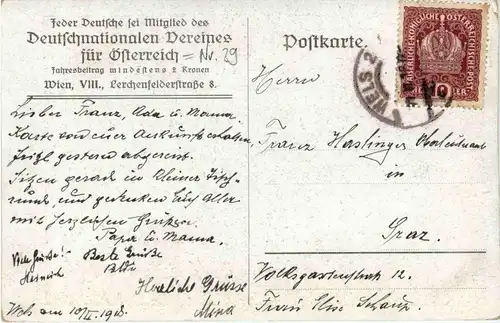 Jeder Deutsche sei Mitglied des
Deutschnationalen Vereines
für Österreich = Nr. 29
Jahresbeitrag mindestens 2 Kronen
Wien, VIII., Lerchenfelderstraße 8.
Lieber Franz, Ada u. Mama.
Karte von euer Ankunft erhalten,
gestern abgereist.
Sitzen gerade in kleiner Tisch-
runde, und gedenken Euch Aller
mit herzlichen Grüßen
Papa u. Mama.
Viele Grüße!
Heinrich
Beste Grüße
Herzliche Grüsse
Mina
Wels am 10/II. 1918.
Postkarte.
WELS 2
KAISERLICHE KÖNIGLICHE ÖSTERREICHISCHE POST
10
HELLER
Herrn
Franz Haslinger Oberleutnant
in
Graz.
Volksgartenstraße 12.
Frau Elise Schaup.